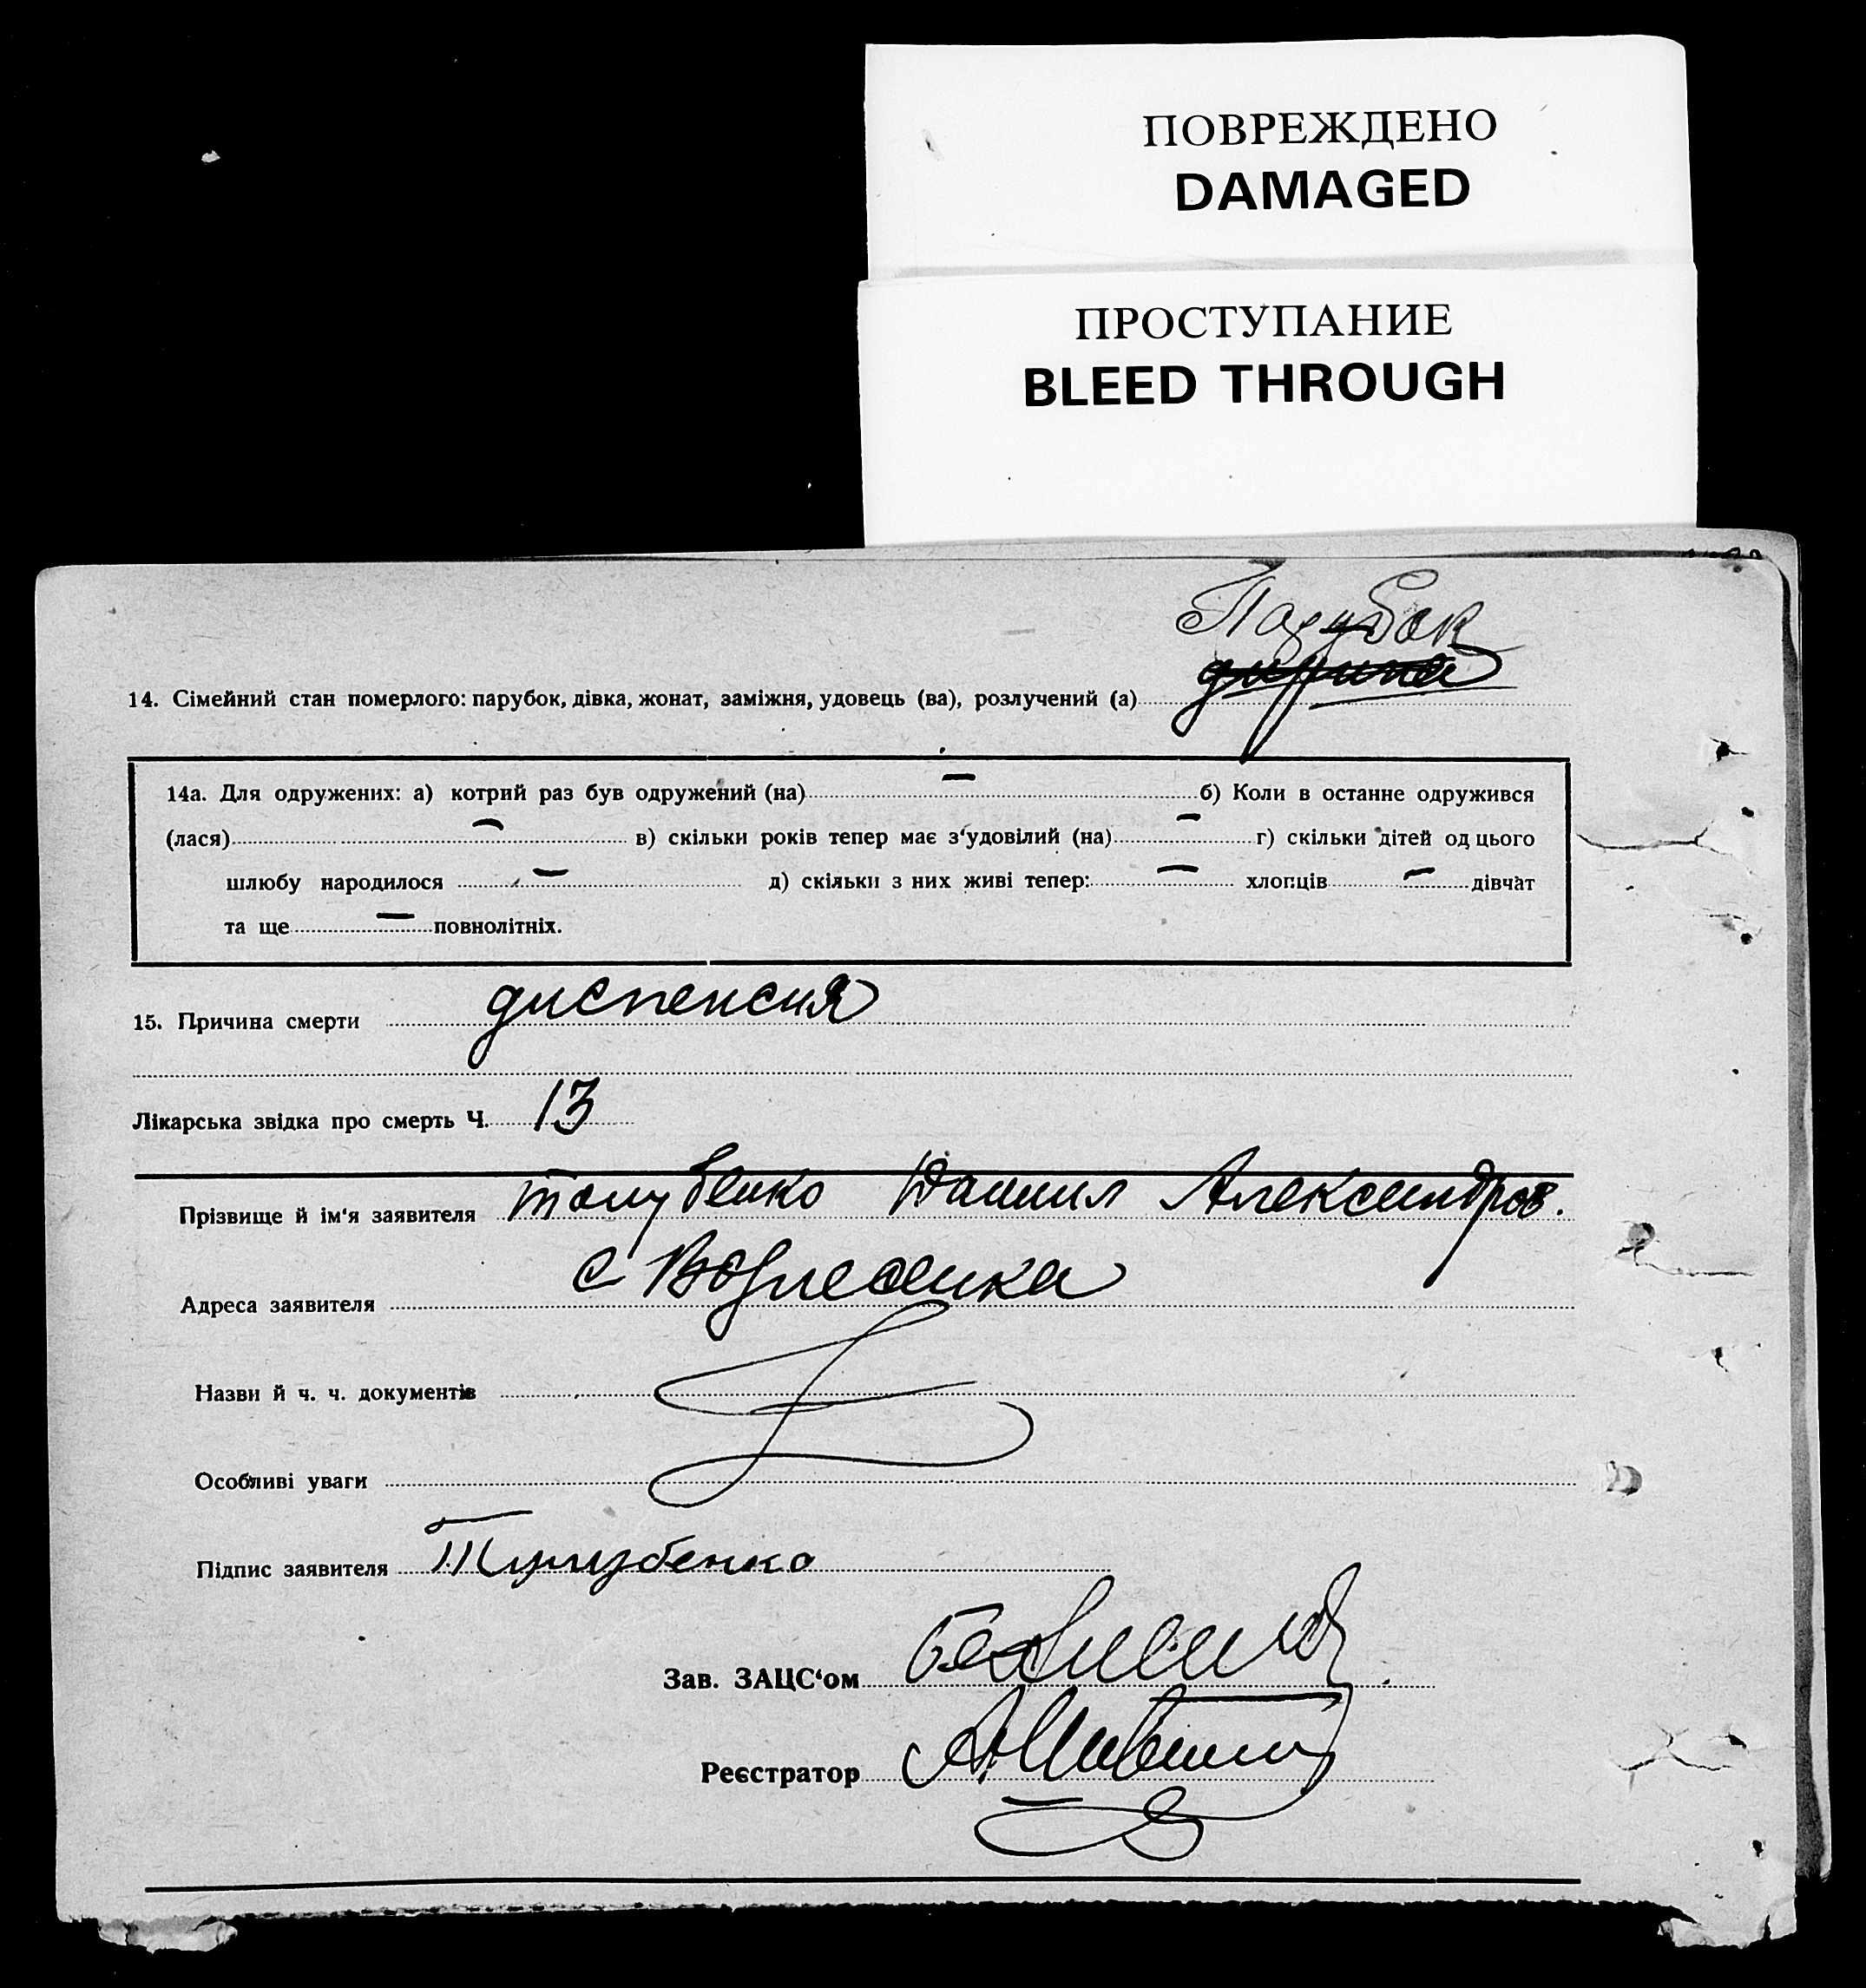 ПОВРЕЖДЕНО
DAMAGED
ПРОСТУПАНИЕ
BLEED THROUGH
Парубок
14. Сімейний стан померлого: парубок, дівка, жонат, заміжня, удовець (ва), розлучений (а)
14а. Для одружених: а) котрий раз був одружений (на) — б) Коли в останнє одружився
(лася) — в) скільки років тепер має з‘удовілий (на) — г) скільки дітей од цього
шлюбу народилося — д) скільки з них живі тепер: — хлопців — дівчат
та ще — повнолітніх.
15. Причина смерти диспепсия
Лікарська звідка про смерть Ч. 13
Прізвище й ім‘я заявителя Данил Александров.
Адреса заявителя с Вознесенка
Назви й ч. ч. документів
Особливі уваги
Підпис заявителя
Зав. ЗАЦС‘ом
Реєстратор